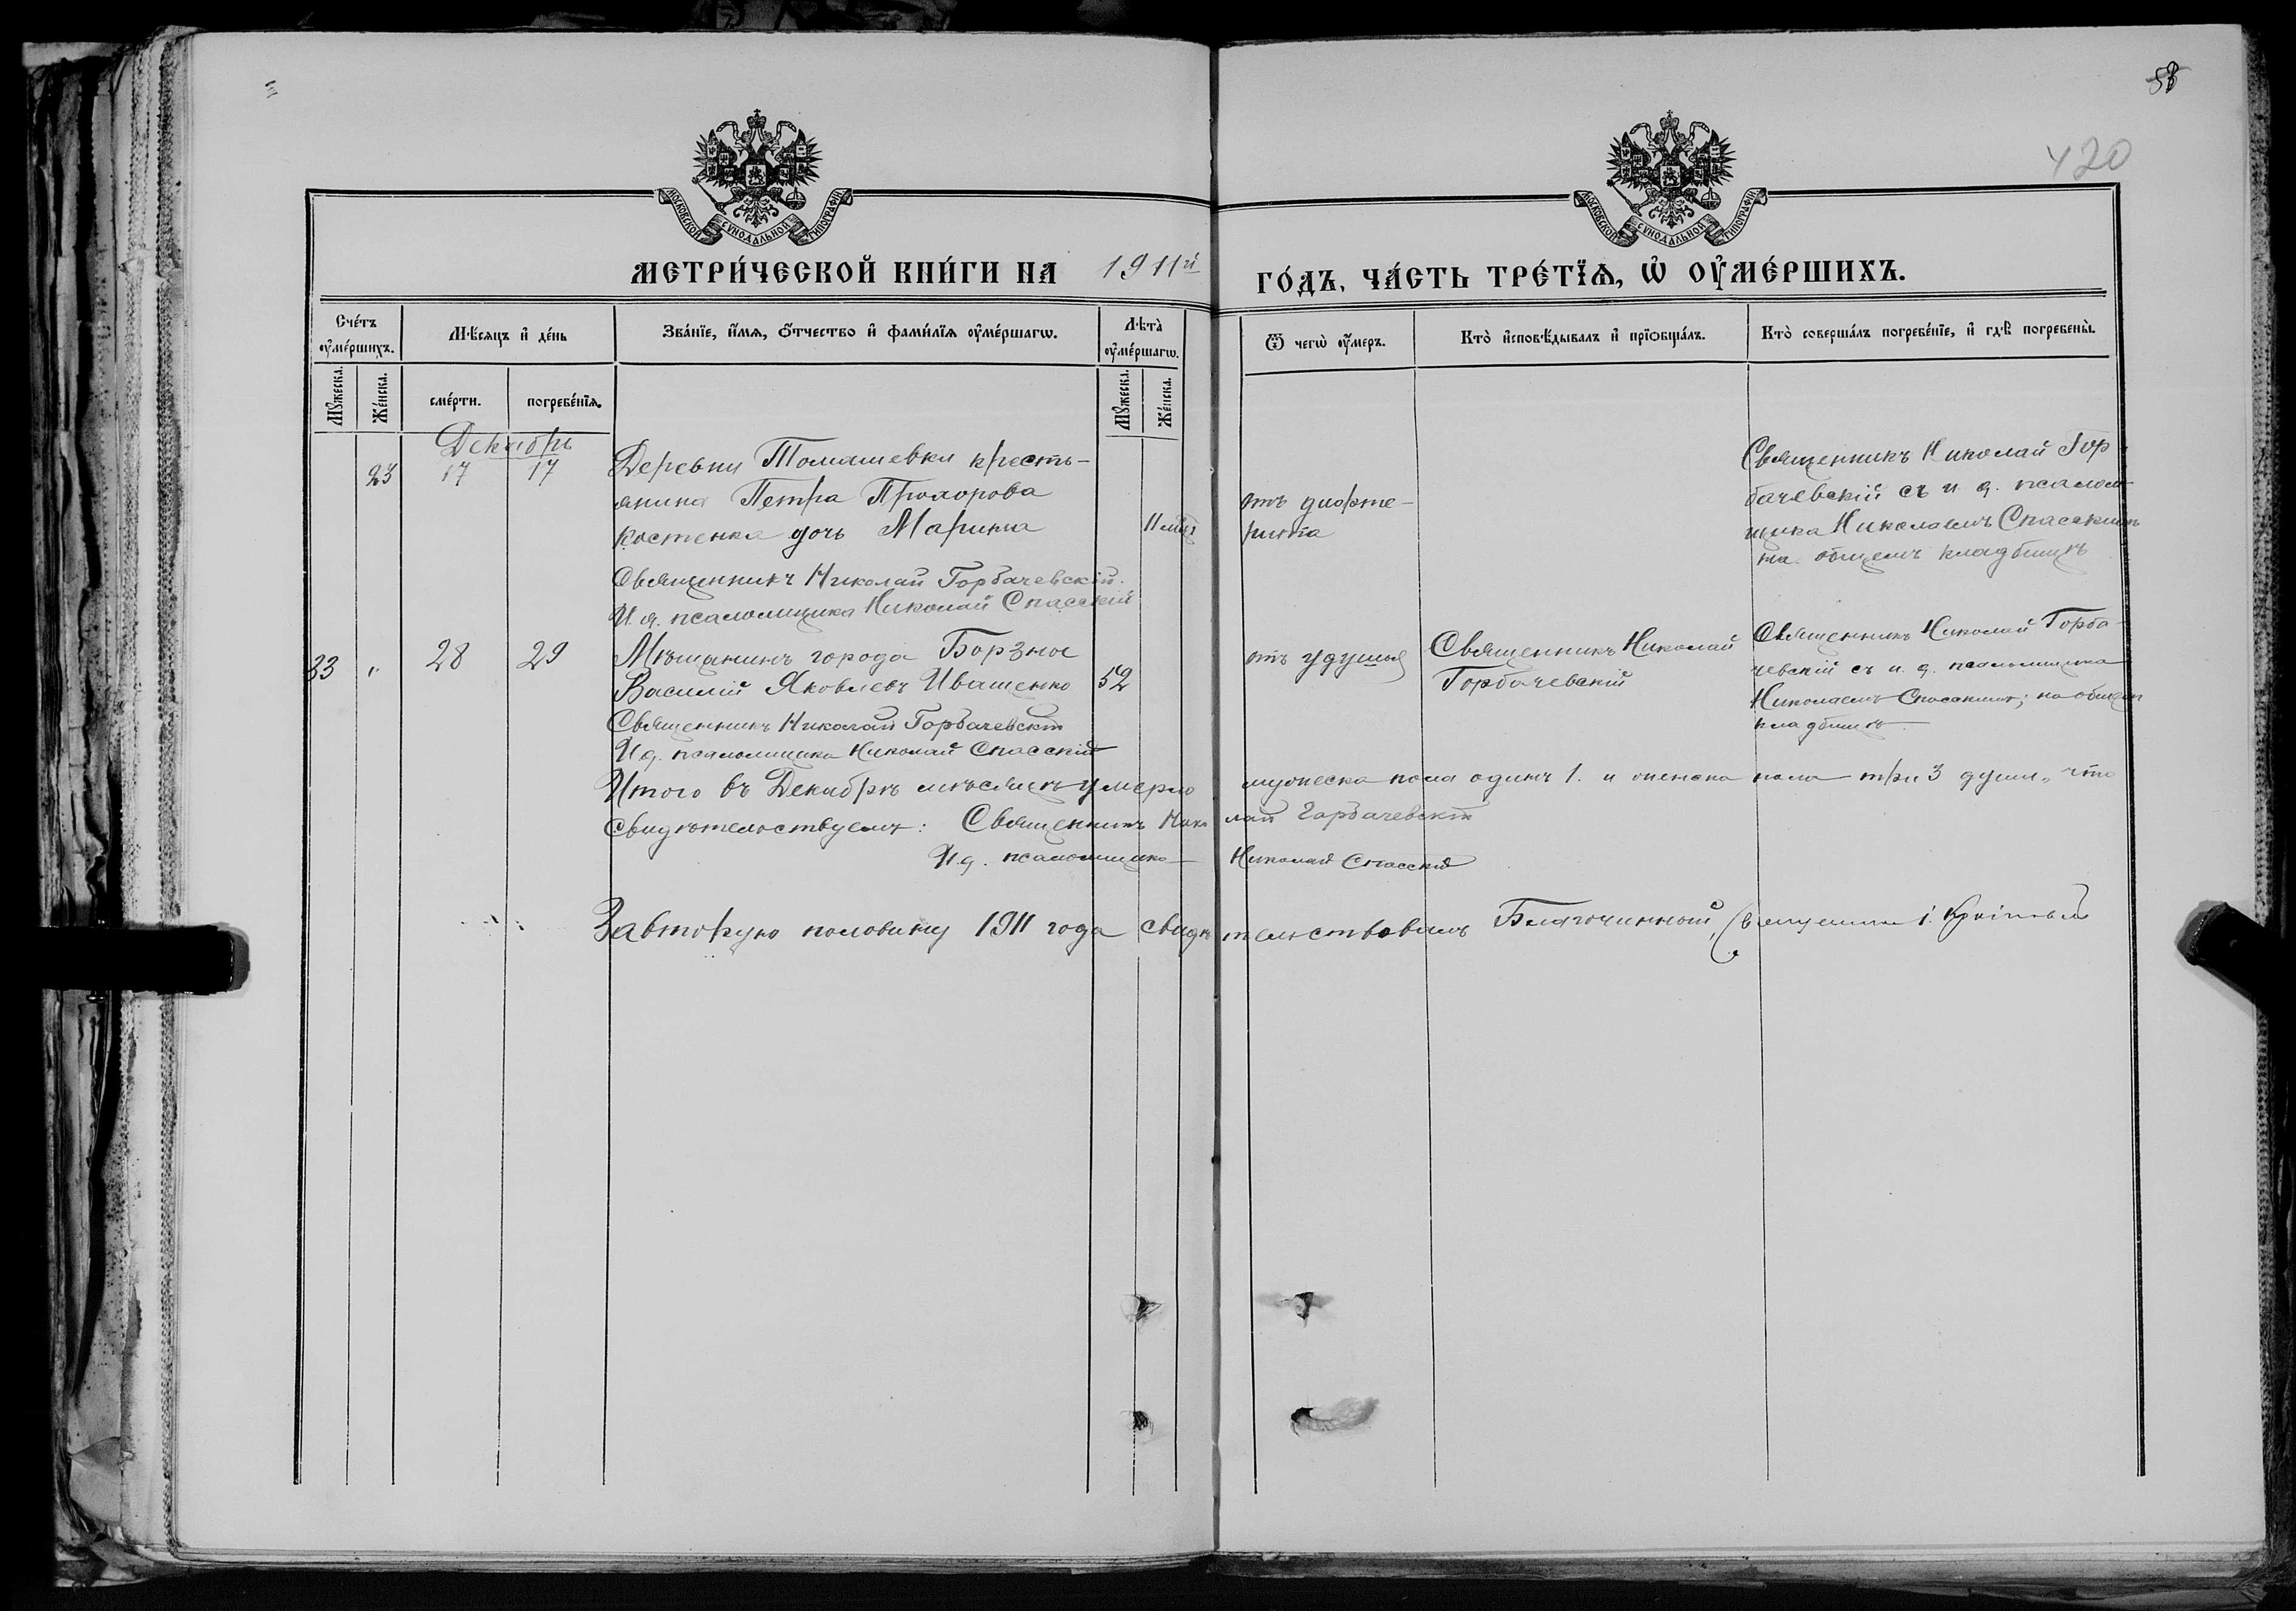 58
420
МОСКОВСКОЙ СѴНОДАЛЬНОЙ ТИПОГРАФІИ
МОСКОВСКОЙ СѴНОДАЛЬНОЙ ТИПОГРАФІИ
МЕТРИ́ЧЕСКОЙ КНИ́ГИ НА 1911й ГО́ДЪ, ЧА́СТЬ ТРЕ́ТЇѦ, Ѡ҆ ОУ҆МЕ́РШИХЪ.
Сче́тъ оу҆ме́ршихъ.
Мѣ́сѧцъ и҆ де́нь
Зва́нїе, и҆́мѧ, ѻ҆́тчество и҆ фами́лїѧ оу҆ме́ршагѡ.
Лѣта̀ оу҆ме́ршагѡ.
Ѿ чегѡ̀ оу҆́меръ.
Кто̀ и҆сповѣ́дывалъ и҆ прїѡбща́лъ.
Кто̀ соверша́лъ погребе́нїе, и҆ гдѣ̀ погребены̀.
Мꙋ́жеска.
Же́нска.
сме́рти.
погребе́нїѧ.
Мꙋ́жеска.
Же́нска.
Декабрь
23 17 17 Деревни Томашевки кресть-
янина Петра Прохорова
Костенка дочь Марина
11 мѣс.
отъ дифте-
рита
Священникъ Николай Гор-
бачевскій съ и д. псалом-
щика Николаемъ Спасскимъ
на общемъ кладбищѣ
Священникъ Николай Горбачевскій.
И. д. псаломщика Николай Спасскій
33 " 28 29 Мѣщанинъ города Борзны
Василій Яковлевъ Иващенко 52
отъ удушья
Священникъ Николай
Горбачевскій
Священникъ Николай Горба-
чевскій съ и. д. псаломщика
Николаемъ Спасскимъ; на общем
кладбищѣ
Священникъ Николай Горбачевскій
И д. псаломщика Николай Спасскій
Итого въ Декабрѣ мѣсяцѣ умерло мужеска пола одинъ 1. и женска пола три 3 души, что
свидѣтельствуемъ: Священникъ Николай Горбачевскій
И. д. псаломщика Николай Спасскій
За вторую половину 1911 года свидѣтельствовалъ Благочинный,